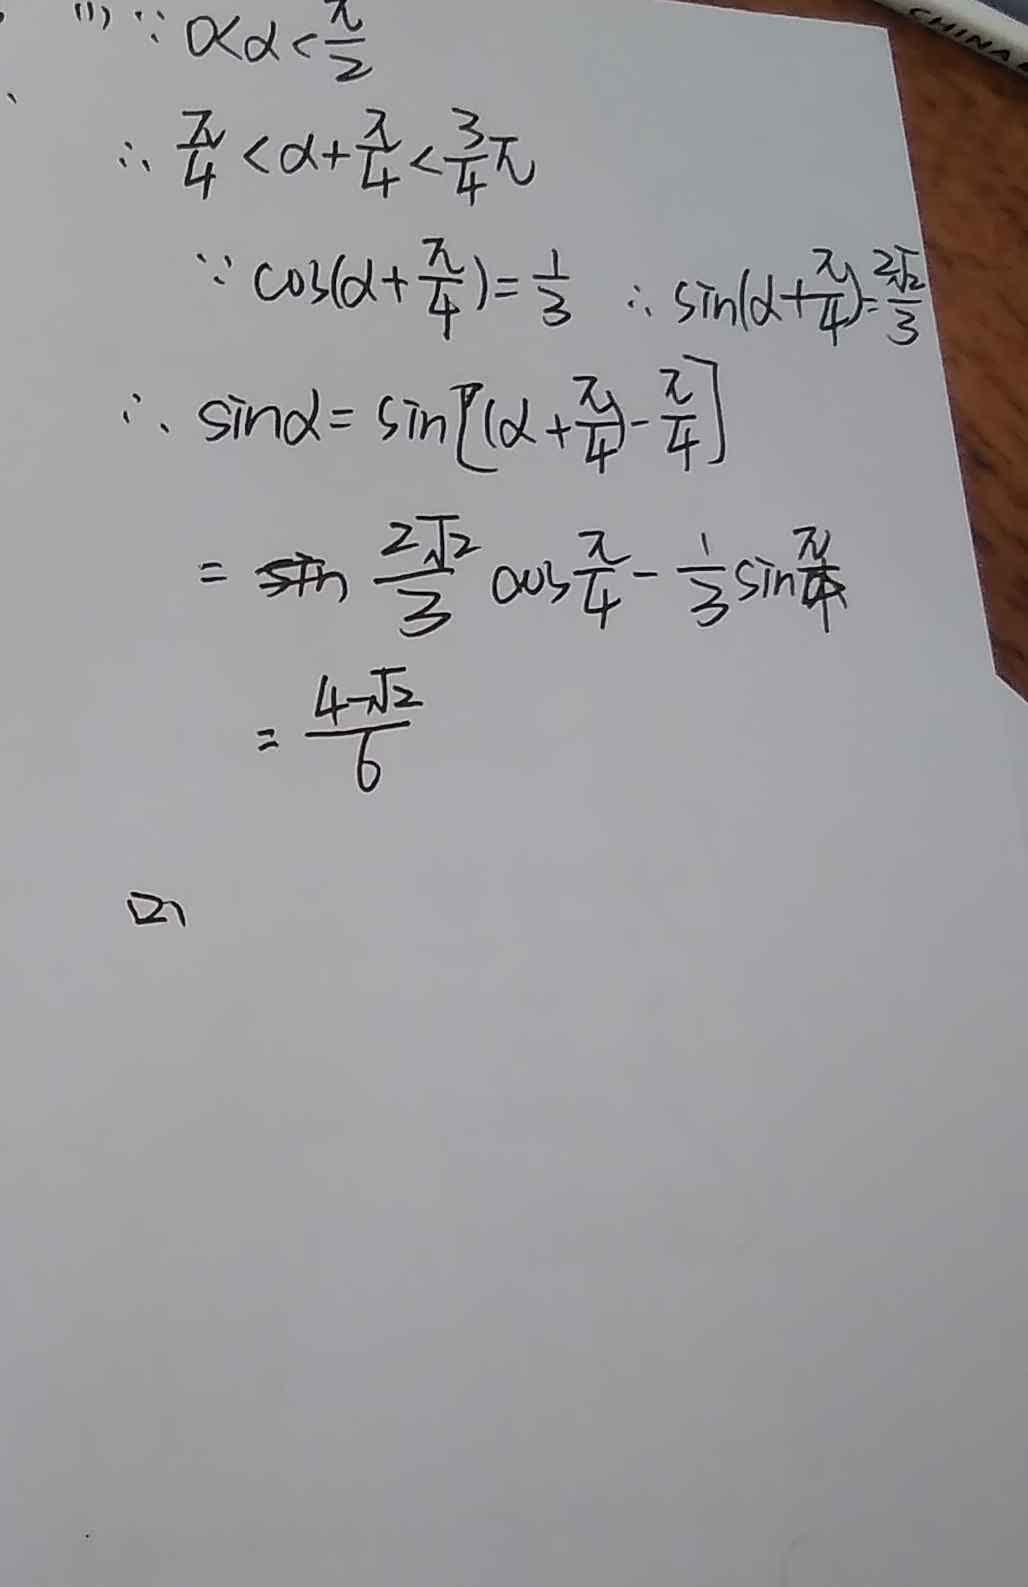 CHINA
(1) ∵ 0<α<π/2
∴ π/4 <α+π/4<3/4π
∵ cos(α+π/4)=1/3 ∴ sin(α+π/4)=2√2/3
∴ sinα= sin[(α+π/4)-π/4]
= 2√2/3 cosπ/4 - 1/3 sinπ/4
= 4-√2/6
(2)